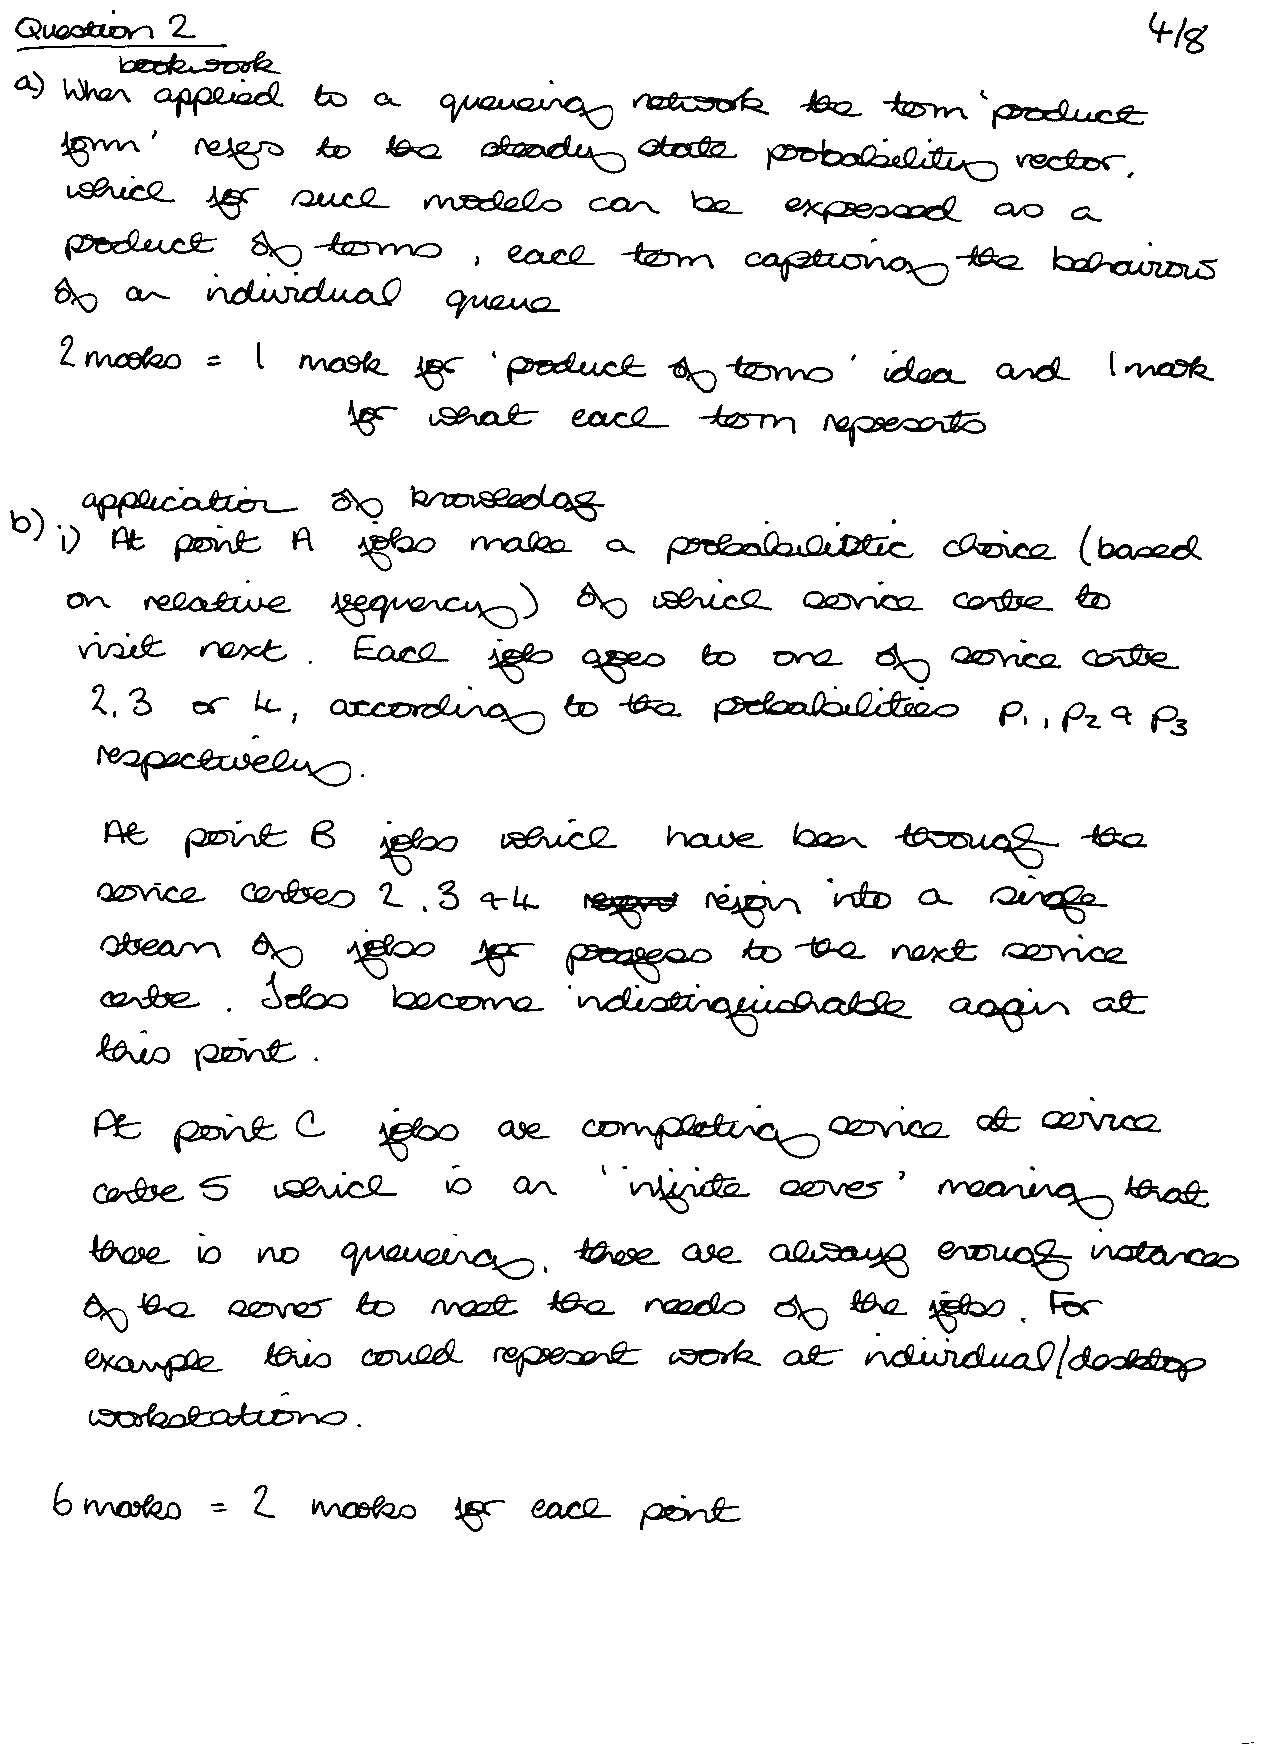 Question 2
4/8
bookwork
a) When applied to a queueing network the term 'product
form' refers to the steady state probability vector,
which for such models can be expressed as a
product of terms, each term capturing the behaviour
of an individual queue
2 marks = 1 mark for 'product of terms' idea and 1 mark
for what each term represents
application of knowledge
b) i) At point A jobs make a probabilistic choice (based
on relative frequency) of which service centre to
visit next. Each job goes to one of service centre
2, 3 or 4, according to the probabilities p1, p2 & p3
respectively.
At point B jobs which have been through the
service centres 2, 3 & 4 rejoin into a single
stream of jobs for progress to the next service
centre. Jobs become indistinguishable again at
this point.
At point C jobs are completing service at service
centre 5 which is an 'infinite server' meaning that
there is no queueing, there are always enough instances
of the server to meet the needs of the jobs. For
example this could represent work at individual/desktop
workstations.
6 marks = 2 marks for each point